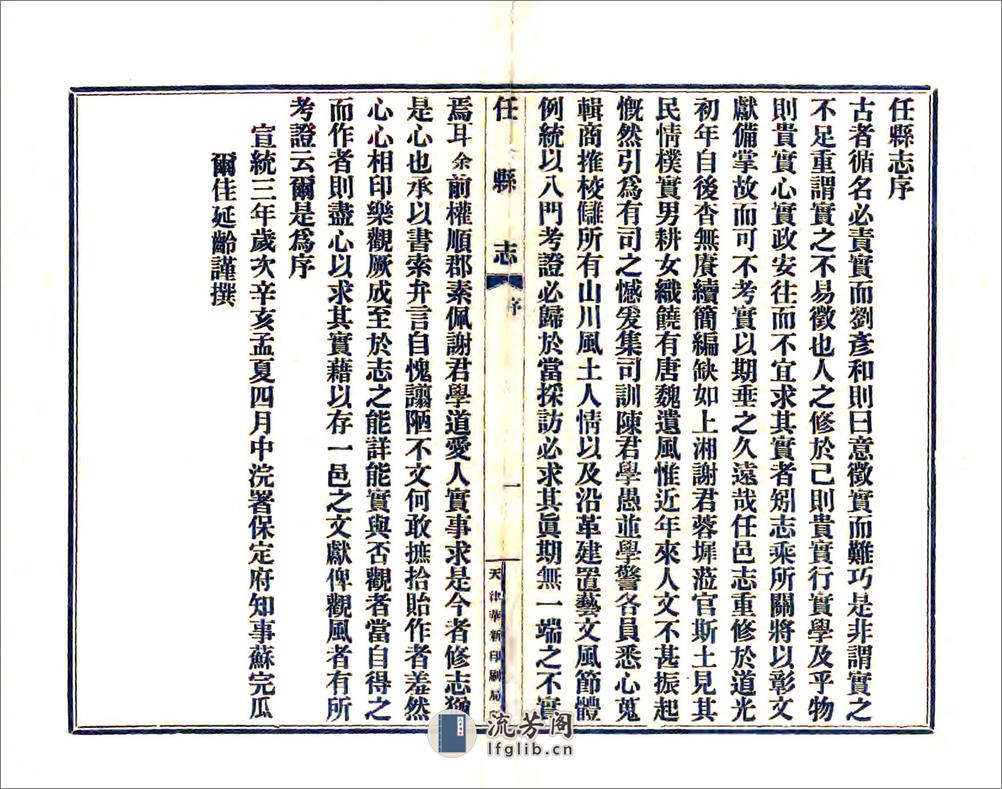 任縣志序
古者循名必責實而劉彥和則曰意徵實而難巧是非謂實之
不足重謂實之不易徵也人之修於己則貴實行實學及乎物
則貴實心實政安往而不宜求其實者矧志乘所關將以彰文
獻備掌故而可不考實以期垂之久遠哉任邑志重修於道光
初年自後杳無賡續簡編缺如上湘謝君蓉墀蒞官斯土見其
民情樸實男耕女織饒有唐魏遺風惟近年來人文不甚振起
慨然引爲有司之憾爰集司訓陳君學愚並學警各員悉心蒐
輯商搉校讎所有山川風土人情以及沿革建置藝文風節體
例統以八門考證必歸於當採訪必求其眞期無一端之不實
任縣志
序
一
天津華新印刷局
焉耳余前權順郡素佩謝君學道愛人實事求是今者修志猶
是心也承以書索弁言自愧譾陋不文何敢摭拾貽作者羞然
心心相印樂觀厥成至於志之能詳能實與否觀者當自得之
而作者則盡心以求其實藉以存一邑之文獻俾觀風者有所
考證云爾是爲序
宣統三年歲次辛亥孟夏四月中浣署保定府知事蘇完瓜
爾佳延齡謹撰
流芳阁
lfglib.cn